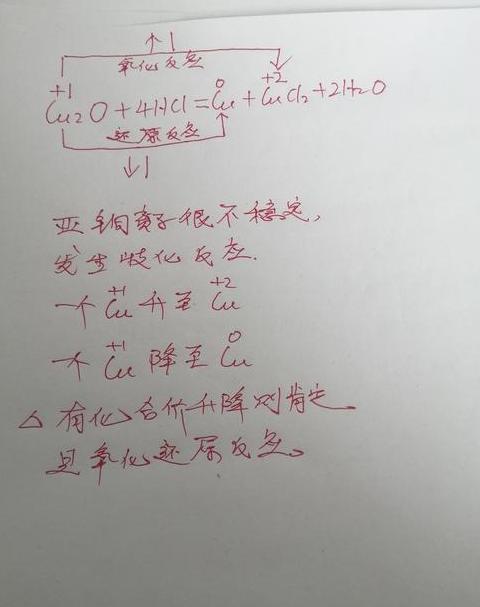 ↑1
氧化反应
+1 0 +2
Cu2O + 4HCl = Cu + CuCl2 + 2H2O
还原反应
↓1
亚铜离子很不稳定,
发生歧化反应.
一个 +1Cu 升至 +2Cu
一个 +1Cu 降至 0Cu
△ 有化合价升降则肯定
是氧化还原反应。